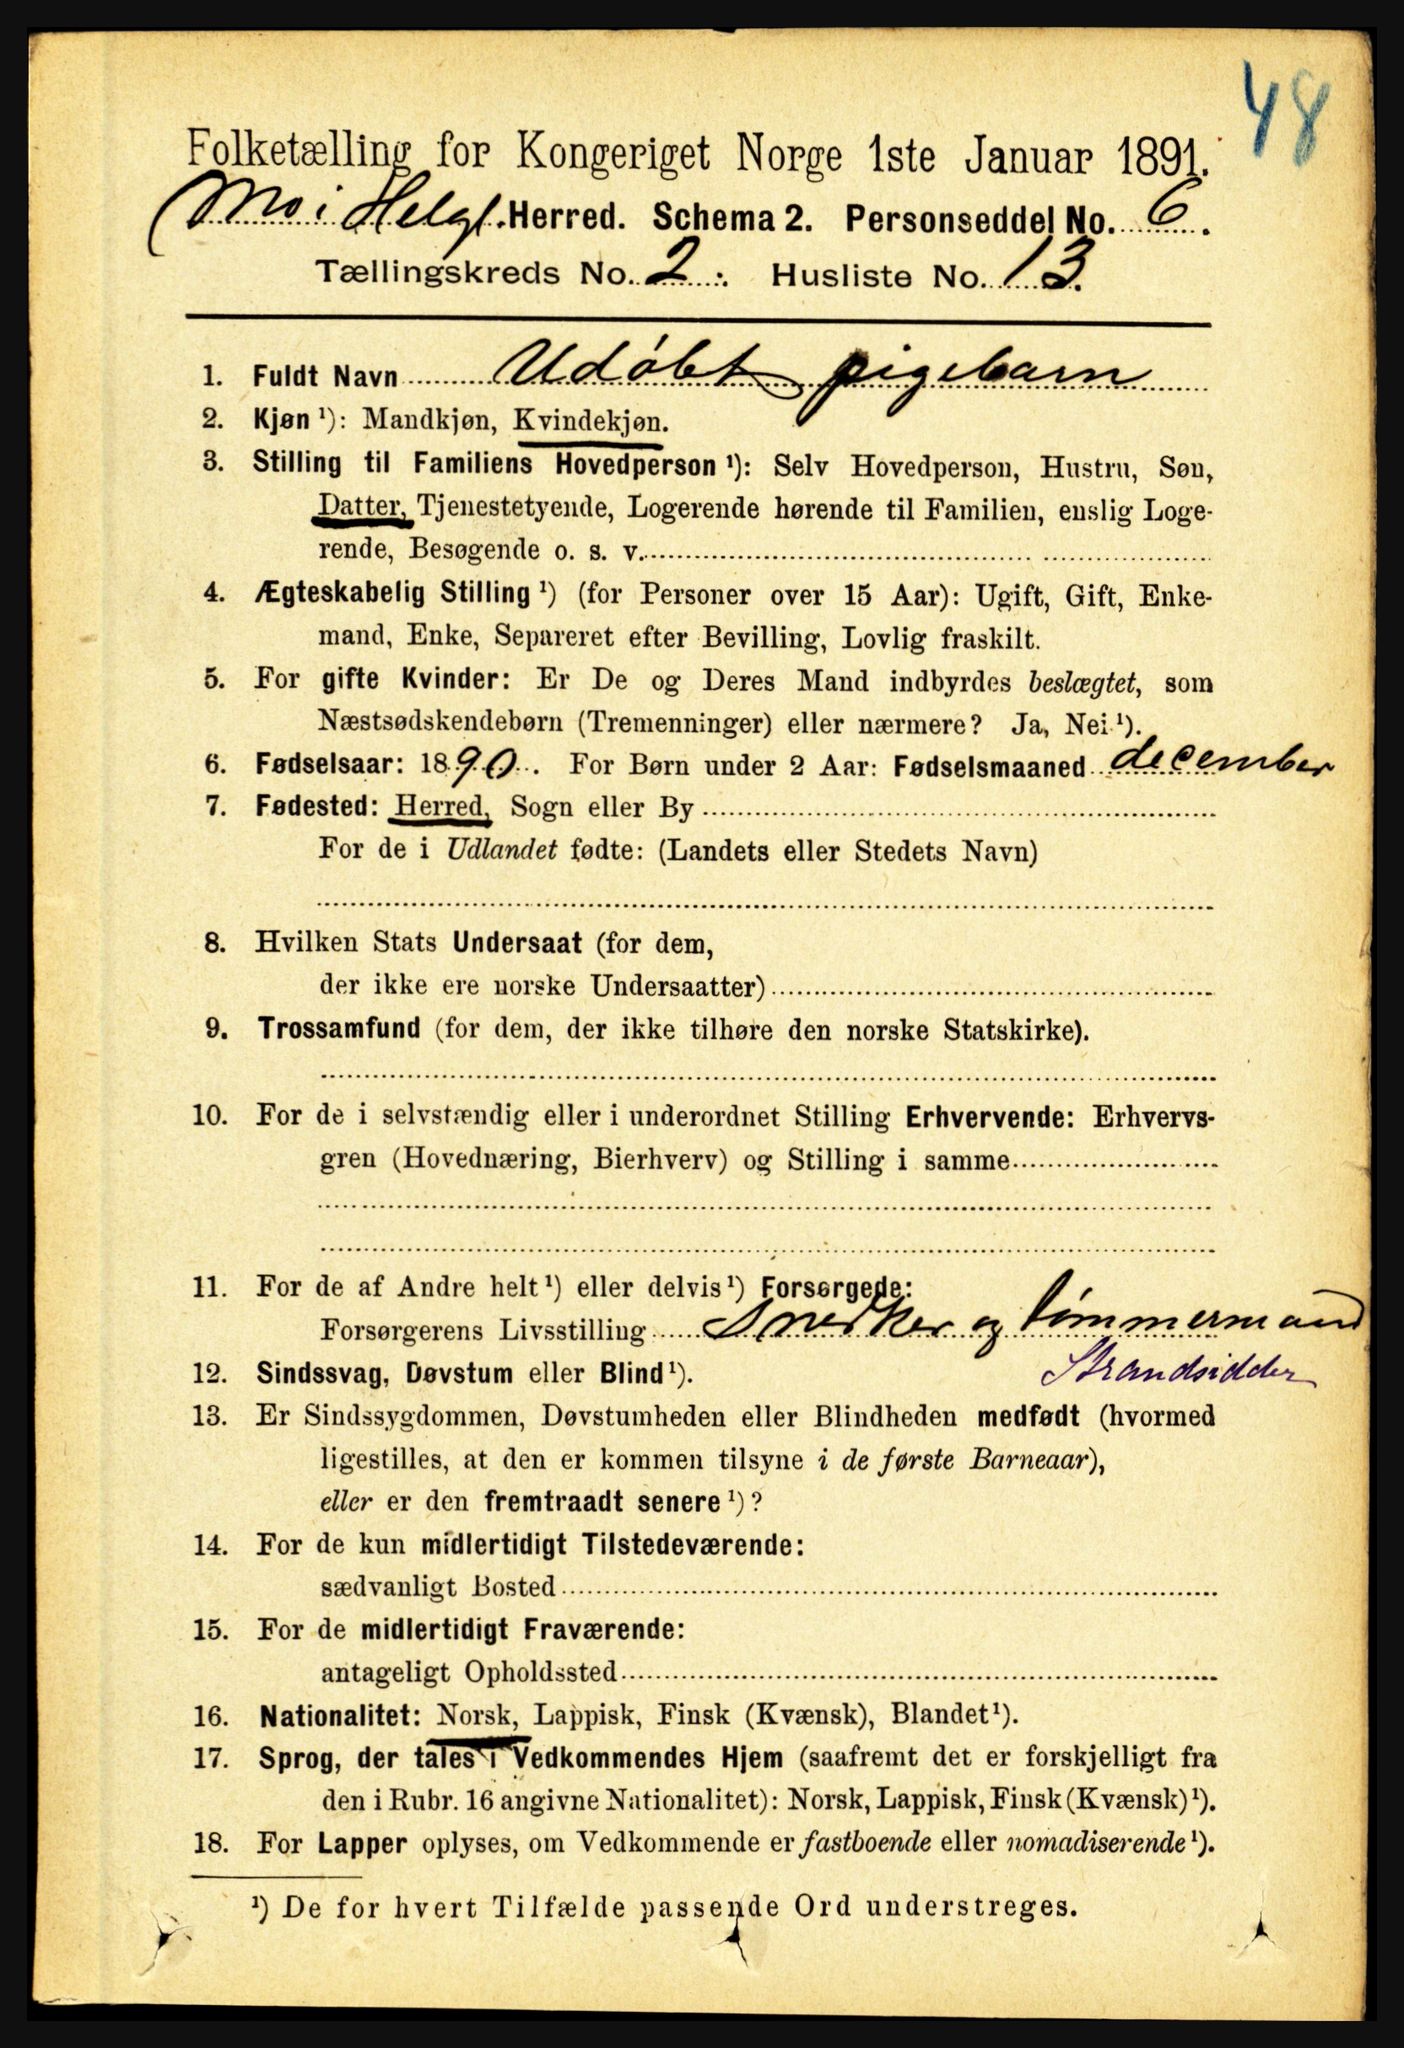 48
Folketælling for Kongeriget Norge 1ste Januar 1891.
Mo i Helgl. Herred. Schema 2. Personseddel No. 6.
Tællingskreds No. 2. Husliste No. 13.
1. Fuldt Navn Udøbt pigebarn
2. Kjøn ¹): Mandkjøn, Kvindekjøn.
3. Stilling til Familiens Hovedperson ¹): Selv Hovedperson, Hustru, Søn,
Datter, Tjenestetyende, Logerende hørende til Familien, enslig Loge-
rende, Besøgende o. s. v.
4. Ægteskabelig Stilling ¹) (for Personer over 15 Aar): Ugift, Gift, Enke-
mand, Enke, Separeret efter Bevilling, Lovlig fraskilt.
5. For gifte Kvinder: Er De og Deres Mand indbyrdes beslægtet, som
Næstsødskendebørn (Tremenninger) eller nærmere? Ja, Nei ¹).
6. Fødselsaar: 1890. For Børn under 2 Aar: Fødselsmaaned december
7. Fødested: Herred, Sogn eller By
For de i Udlandet fødte: (Landets eller Stedets Navn)
8. Hvilken Stats Undersaat (for dem,
der ikke ere norske Undersaatter)
9. Trossamfund (for dem, der ikke tilhøre den norske Statskirke).
10. For de i selvstændig eller i underordnet Stilling Erhvervende: Erhvervs-
gren (Hovednæring, Bierhverv) og Stilling i samme
11. For de af Andre helt ¹) eller delvis ¹) Forsørgede:
Forsørgerens Livsstilling Snedker og tømmermand
Strandsidder
12. Sindssvag, Døvstum eller Blind ¹).
13. Er Sindssygdommen, Døvstumheden eller Blindheden medfødt (hvormed
ligestilles, at den er kommen tilsyne i de første Barneaar),
eller er den fremtraadt senere ¹)?
14. For de kun midlertidigt Tilstedeværende:
sædvanligt Bosted
15. For de midlertidigt Fraværende:
antageligt Opholdssted
16. Nationalitet: Norsk, Lappisk, Finsk (Kvænsk), Blandet ¹).
17. Sprog, der tales i Vedkommendes Hjem (saafremt det er forskjelligt fra
den i Rubr. 16 angivne Nationalitet): Norsk, Lappisk, Finsk (Kvænsk) ¹).
18. For Lapper oplyses, om Vedkommende er fastboende eller nomadiserende ¹).
¹) De for hvert Tilfælde passende Ord understreges.